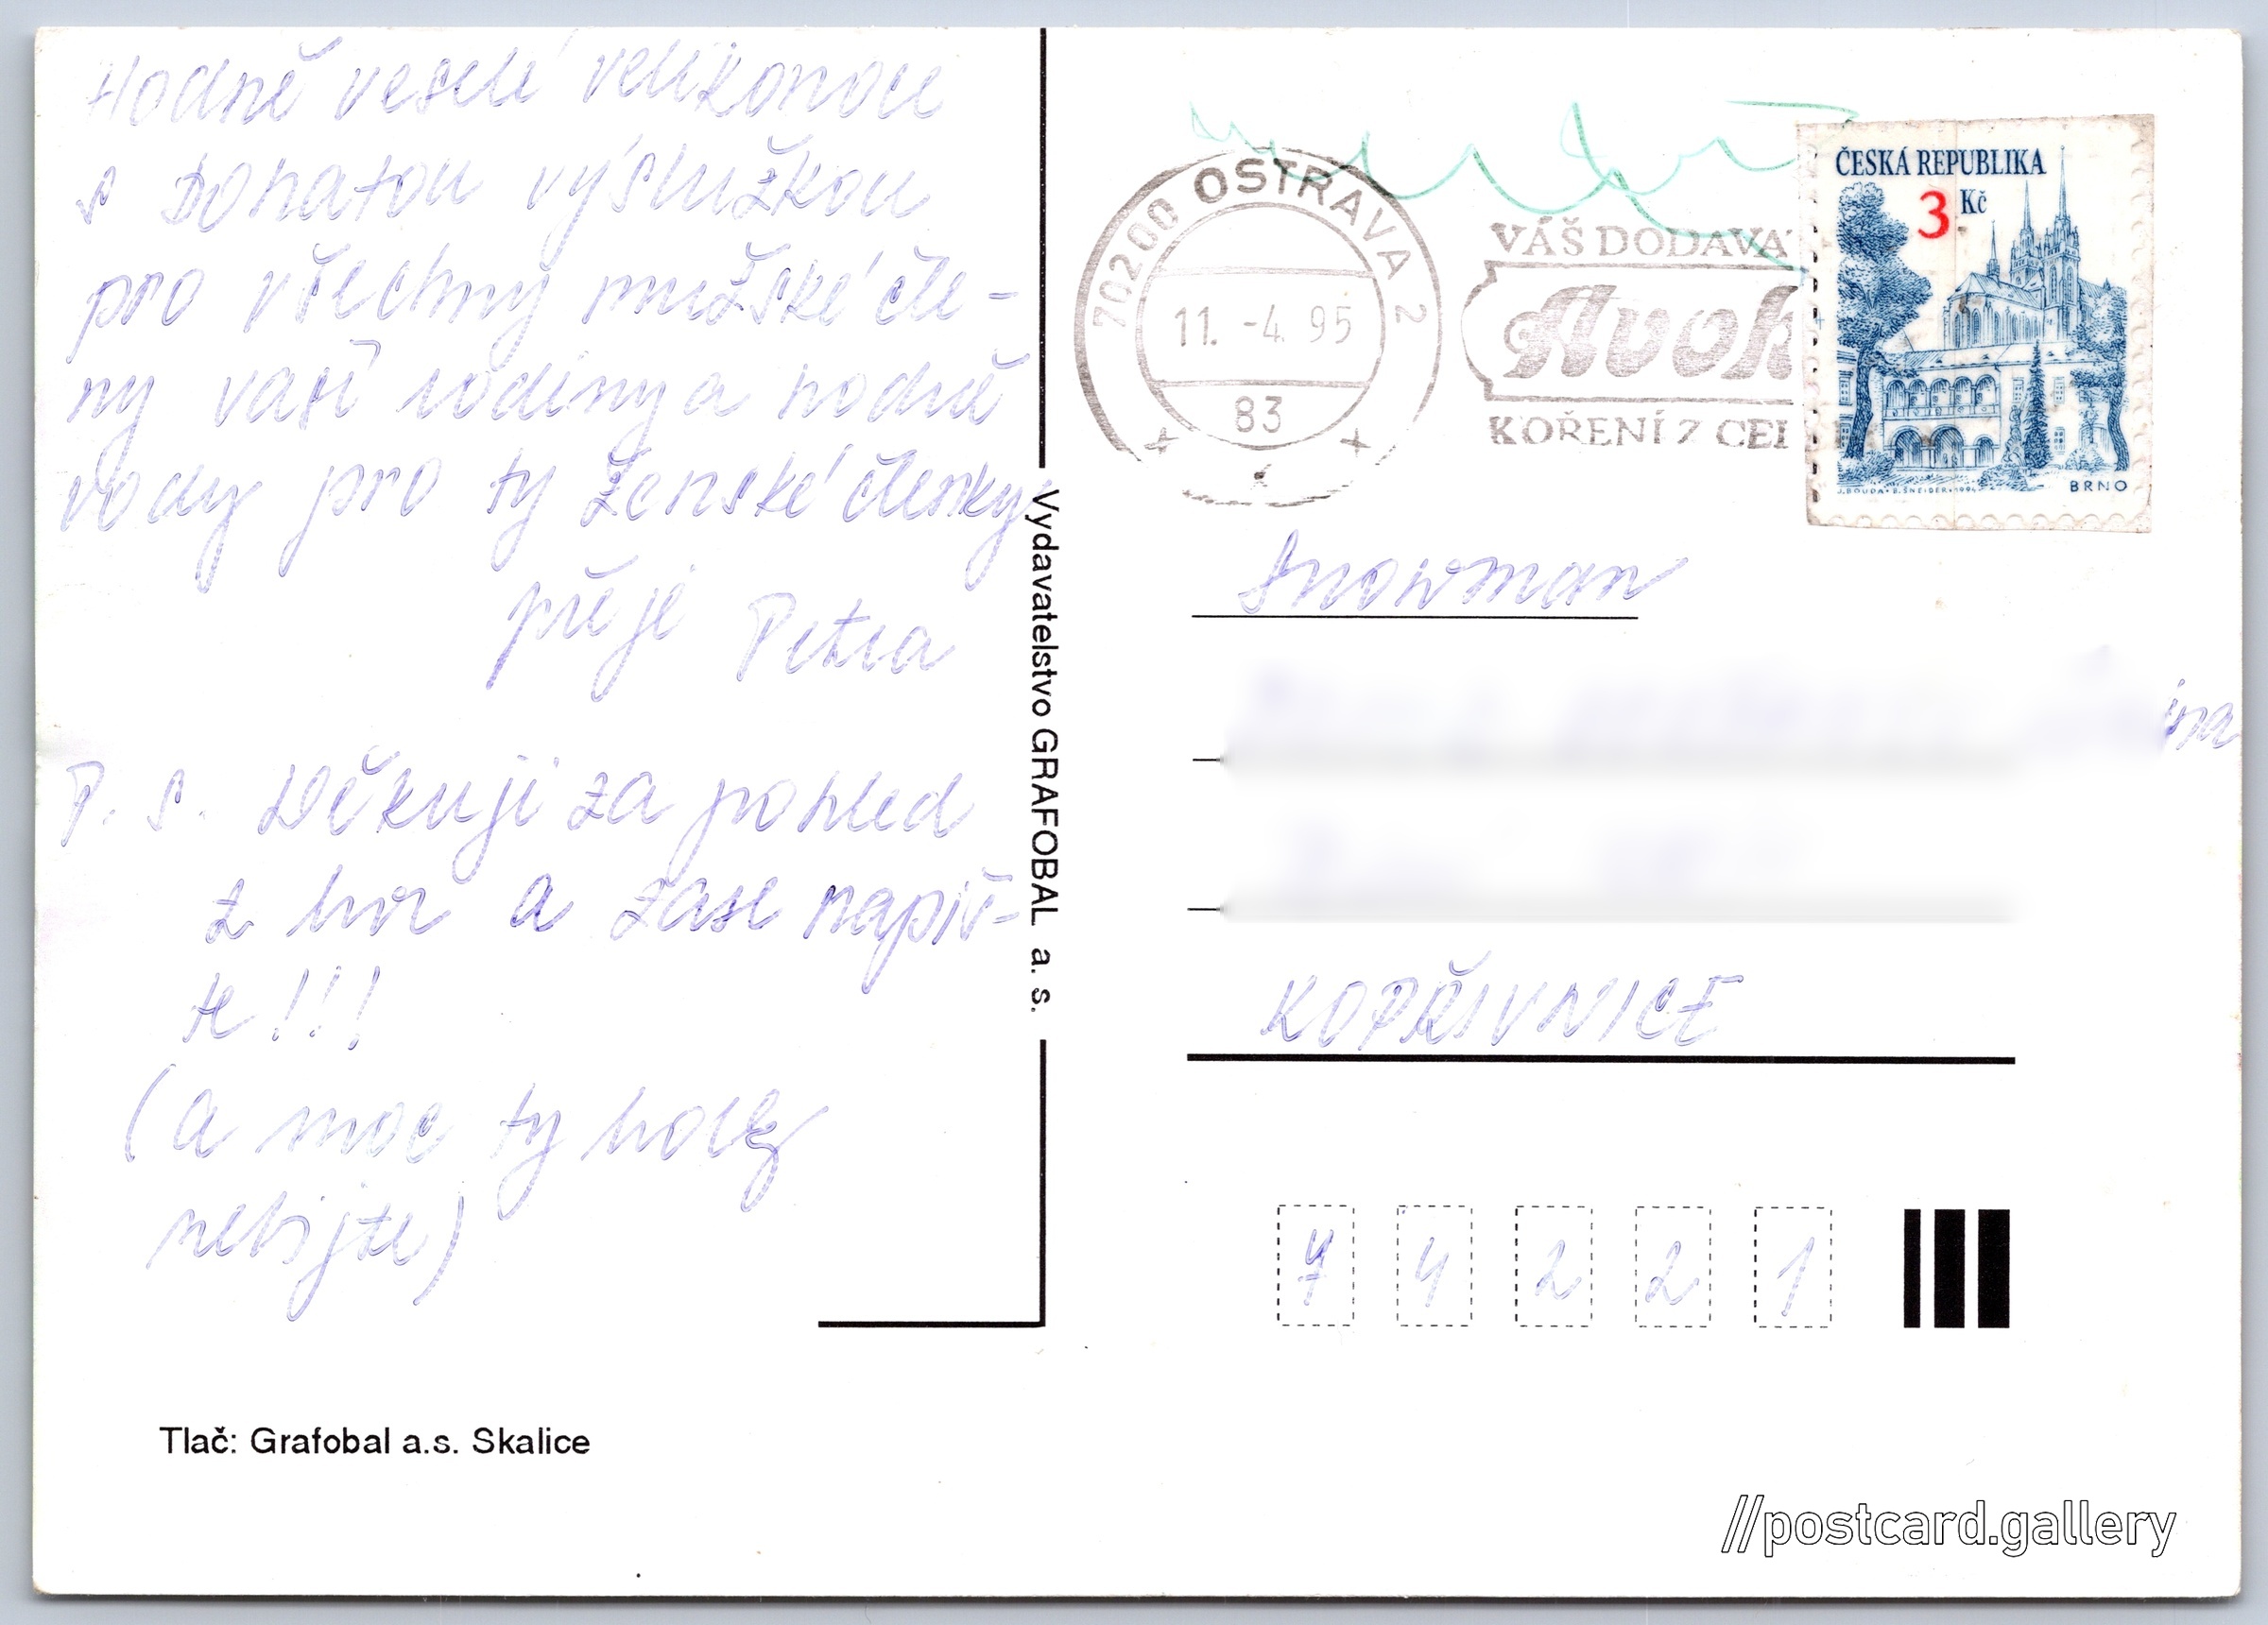 Hodně veselé velikonoce
s bohatou výslužkou
pro všechny mužské čle-
ny vaší rodiny a hodně
vody pro ty ženské členky
přeje Petra
P. S. Děkuji za pohled
z hor a zase napiš-
te!!!
(a moc ty holky
nebijte)
Tlač: Grafobal a.s. Skalice
Vydavatelstvo GRAFOBAL a. s.
70200 OSTRAVA 2
11. -4. 95
83
VÁŠ DODAVA
KOŘENÍ Z CEL
ČESKÁ REPUBLIKA
3 Kč
J. BOUDA • B. ŠNEIDER • 1994
BRNO
Snowman
KOPŘIVNICE
7 4 2 2 1
//postcard.gallery